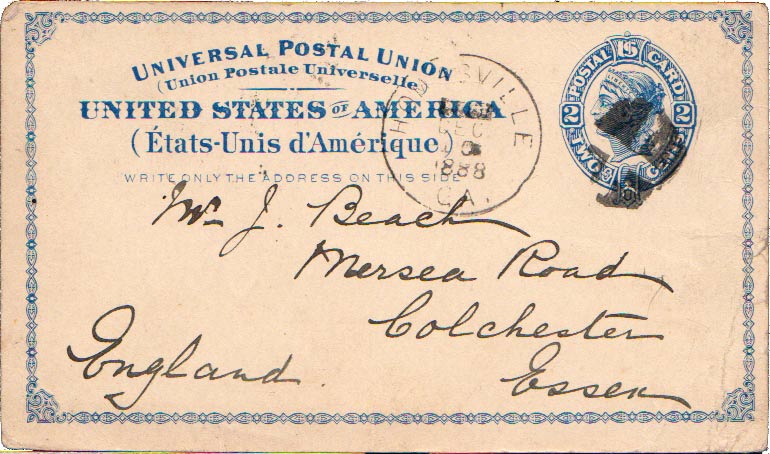 UNIVERSAL POSTAL UNION
(Union Postale Universelle)
UNITED STATES OF AMERICA
(États-Unis d'Amérique)
WRITE ONLY THE ADDRESS ON THIS SIDE
POSTAL U.S. CARD
2 2
TWO CENTS
DEC
1888
CA.
Mr. J. Beach
Mersea Road
Colchester
Essex
England